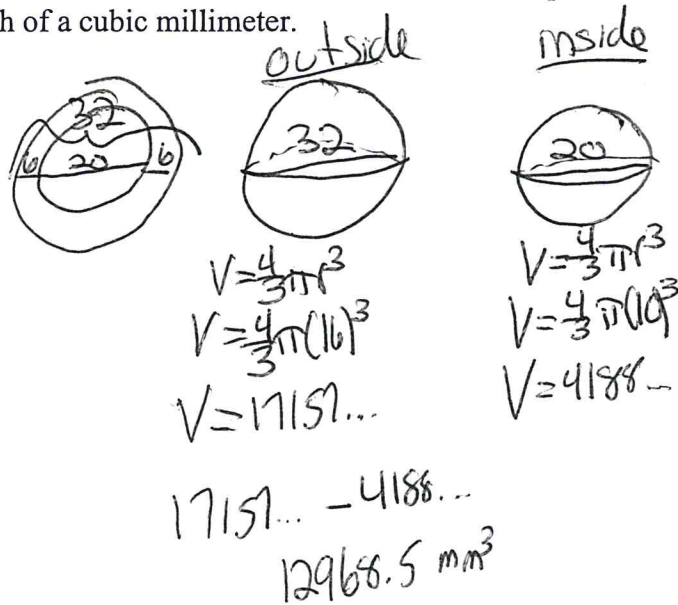 h of a cubic millimeter.
outside
inside
32
6 20 6
32
20
V=4/3πr³
V=4/3π(16)³
V=17157...
V=4/3πr³
V=4/3π(10)³
V=4188...
17157... - 4188...
12968.5 mm³